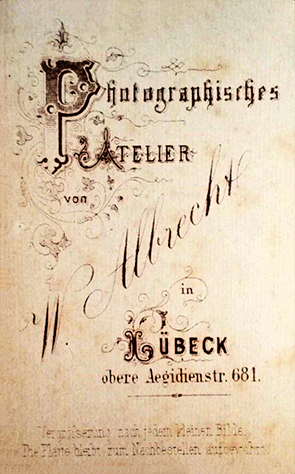 Photographisches
Atelier
von
W. Albrecht
in
LÜBECK
obere Aegidienstr. 681.
Vergröserung nach jedem kleinen Bilde.
Die Platte bleibt zum Nachbestellen aufbewahrt.